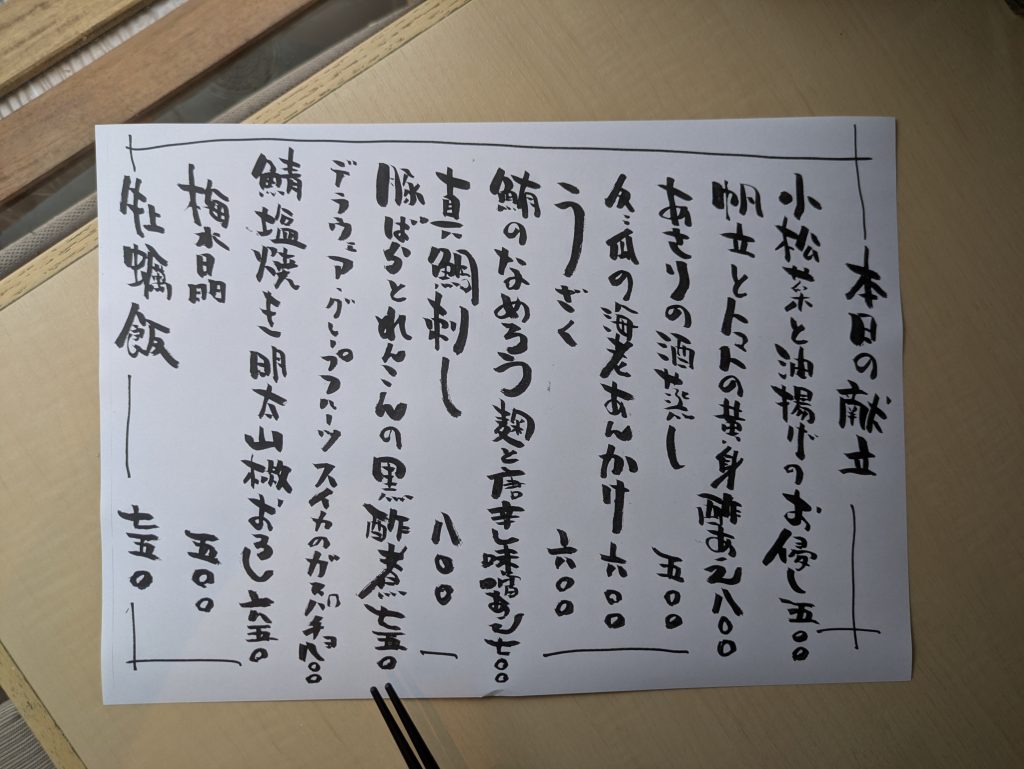 本日の献立
小松菜と油揚げのお浸し 五〇〇
帆立とトマトの黄身酢あえ 八〇〇
あさりの酒蒸し 五〇〇
冬瓜の海老あんかけ 六〇〇
うざく 六〇〇
鮪のなめろう 麹と唐辛し味噌あえ 七〇〇
真鯛刺し 八〇〇
豚ばらとれんこんの黒酢煮 七五〇
デラウェア・グレープフルーツ スイカのガスパチョ 八〇〇
鯖塩焼き 明太山椒おろし 六五〇
梅水晶 五〇〇
牡蠣飯 七五〇